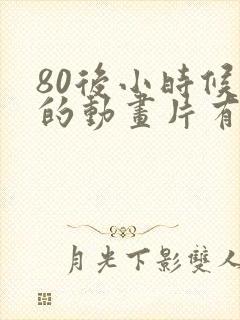 80後小時候
的動畫片有
月光下影雙人